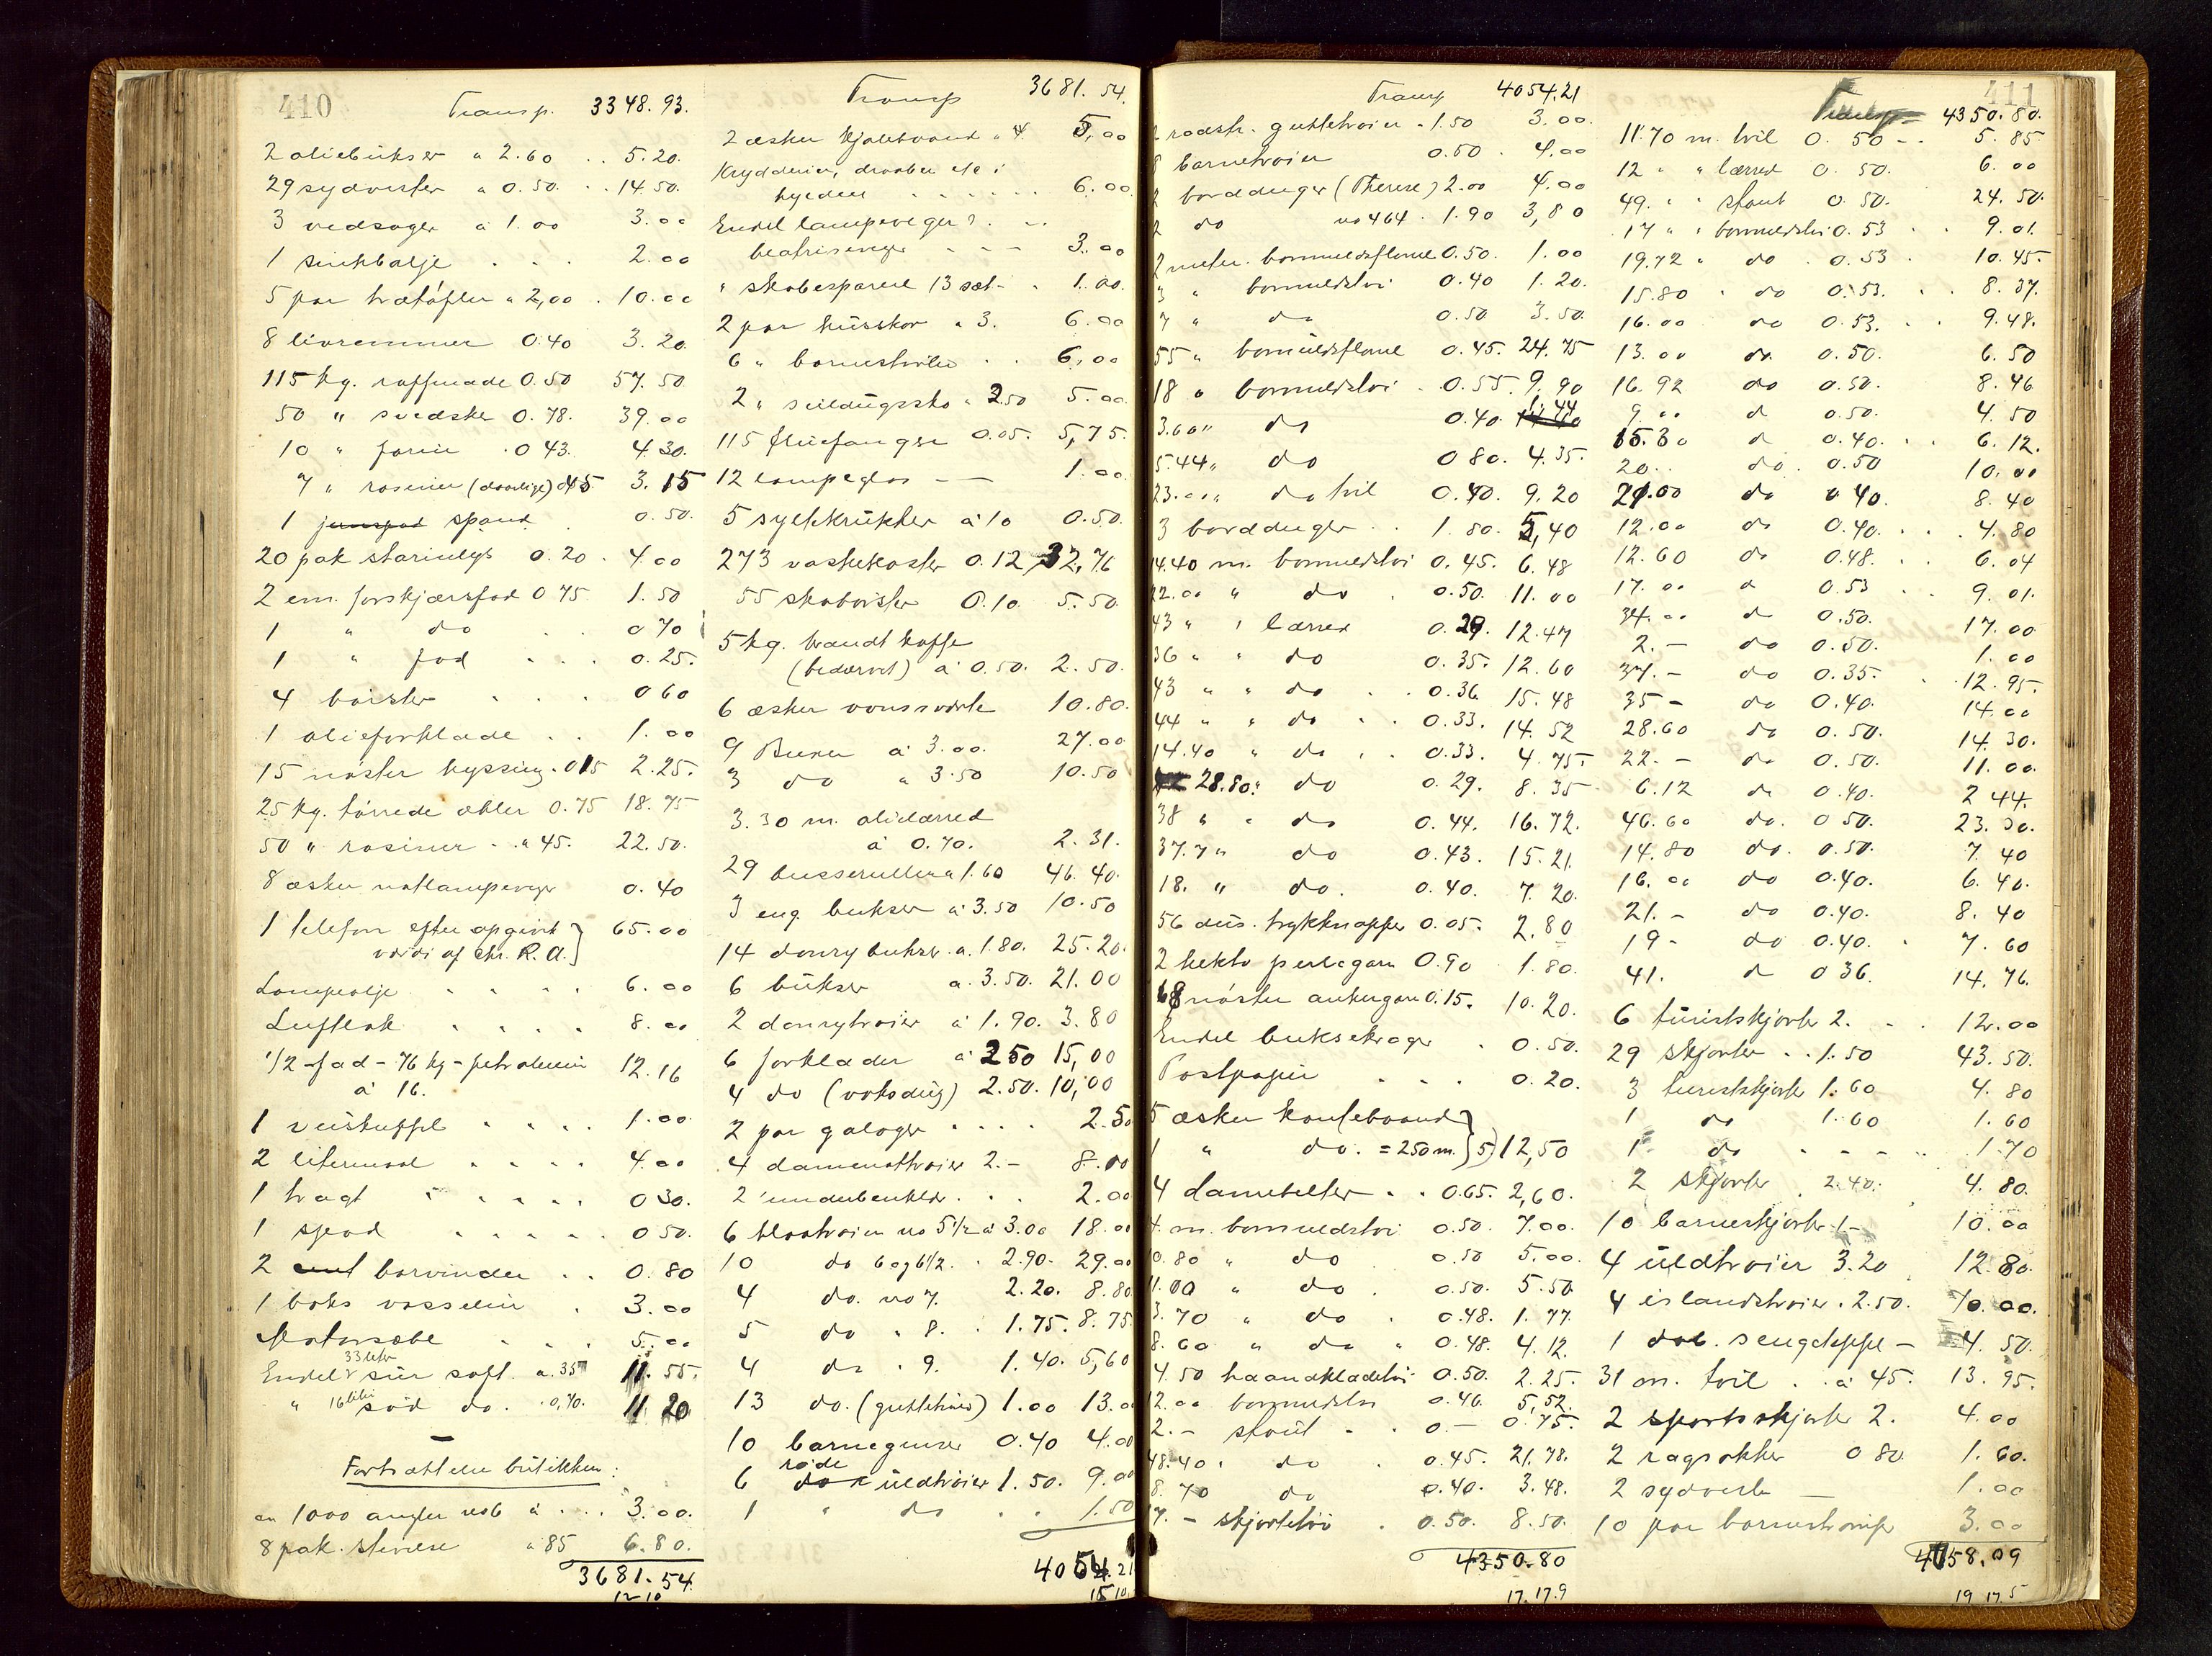 410
Transp. 3348.93.
2 oliebukser a 2.60 . . 5.20.
29 sydvester a 0.50. . . 14.50.
3 vedsager a 1.00 3.00
1 sinkbalje . . . 2.00
5 par trætøfler a 2,00 . 10.00
8 livremmer 0.40 3.20
115 kg. raffinade 0.50 57.50
50 " svedsker 0.78. 39.00
10 " farin . 0 43. 4.30.
7 " rosiner (daarlige) 045 3.15
1 spand 0.50.
20 pak stearinlys 0.20 . 4.00
2 em. forskjærsfad 0 75 1.50
1 " do . . 0 70
1 " fad . . . 0.25.
4 børster . . . 0 60
1 olieforklæde . . 1.00
15 nøster hyssing . 015 2.25.
25 kg. tørrede æbler 0.75 18.75
50 " rosiner . . a 45. 22.50.
8 æsker natlampeveger 0.40
1 telefon efter opgivet } 65.00
værdi af Chr. R. A. }
Lampeolje . . . . 6.00
Luftlak . . . . 8.00
1/2 fad - 76 kg - petroleum 12.16
a 16.
1 . . . . 1.00
2 litermaal . . . . 4.00
1 tragt . . . . . 0 30.
1 spad . . . . . 0 50.
2 borvinder . . 0.80
1 boks vasselin . 3.00
Motorsæbe . . 5.00
Endel 33 liter sur saft a. 35 11.55.
" 16 liter sød do. . 0,70. 11 20
Fortsættelse butikken:
ca 1000 angler no 6 a . . . 3.00.
8 pak. stivelse a 85 6.80.
3681.54
12 10
Transp 3681.54.
2 æsker kjolebaand a 4 5,00
Krydderier, draaber etc i
hylden . . . . . . 6.00
Endel lampeveger & . . .
beatriceveger . . - - 3.00
" skobesparere 13 sæt - . 1.00.
2 par husskor a 3. 6.00
6 " barnestøvler . . 6,00
2 " seildugssko a 2.50 5.00
115 fluefangere 0.05. 5,75.
12 lampeglas — — 1.00
5 syltekrukker a 10 0.50.
273 vaskekoster 0.12 32,76
55 skobørster 0.10. 5.50.
5 kg. brændt kaffe
(bedærvet) a 0.50. 2.50.
6 æsker vonssværte 10.80.
9 Buser a 3.00. 27.00
3 do a 3.50 10.50
3.30 m. olielærred
a 0.70. 2.31.
29 busseruller a 1.60 46.40.
3 eng. bukser a 3.50 10.50
14 donry bukser a. 1.80. 25.20.
6 bukser a. 3.50. 21.00
2 donrytrøier a 1.90. 3.80
6 forklæder a 2 50 15,00
4 do (voksdug) 2.50. 10,00
2 par galoger . . . . 2.50
4 damenattrøier 2.- 8.00
2 underbenklær . . . 2.00
6 blaatrøier no 5 1/2 a 3.00 18.00
10 do 6 og 6 1/2. . 2.90. 29.00
4 do. no 7. 2.20. 8.80
5 do " 8. . 1.75. 8.75
4 do " 9. 1.40. 5,60
13 do. (guttetrøier) 1.00 13.00
10 barnegenser 0.40 4.00
6 røde uldtrøier 1.50. 9.00
1 " do . . 1.50
4054.21
15 10
Transp 4054.21
guttetrøier - 1.50 3.00.
8 barnetrøier 0.50 . 4.00
2 borddueger (Therese) 2.00 4.00
2 do no 464 . 1.90 3,80
2 meter bomuldsflanel 0.50. 1.00
3 " bomuldstøi 0.40 1.20.
7 " do 0.50 3.50.
55 " bomuldsflanel 0.45. 24.75
18 " bomuldstøi . 0.55. 9.90
3.60 " do 0.40. 1.44
5.44 " do 0 80. 4.35.
23.00 " do tvil 0.40. 9.20
3 bordduger . . 1.80. 5,40
14.40 m. bomuldstøi 0.45. 6.48
22.00 " do . 0.50. 11.00
43 " " lærred 0.29. 12.47
36 " " do 0.35. 12.60
43 " " do . . 0.36. 15.48
44 " " do . . 0.33. 14.52
14.40 " do . . 0.33. 4.75.
28.80. " do 0.29. 8.35
38 " " do 0.44. 16.72.
37.7 " do 0.43. 15.21.
18. " do. 0.40. 7.20.
56 dus. trykknapper 0.05. 2.80
2 hekto perlegarn 0.90 1.80.
68 nøster ankergarn 0.15. 10.20.
Endel buksekroger . 0.50.
Postpapir . . . 0.20.
5 æsker kantebaand }
1 " do. = 250 m. } 5) 12,50
4 damebelter . . 0.65. 2,60.
4. m. bomuldstøi 0.50. 7.00.
0.80 " do 0.50 5.00.
11.00 " do . 0.50. 5.50
3.70 " do . 0.48. 1.77.
8.60 " do " 0.48. 4.12.
4.50 haandklædetøi 0.50. 2.25.
12.00 bomuldstøi 0.46. 5,52.
2.- stout . . 0.— 0.75.
48.40 " do . 0.45. 21.78.
8.70 do 0.40. 3.48.
17.- skjortetøi . 0.50. 8.50.
4350.80
17.17.9
411
Transp 4350.80.
11.70 m. tvil 0.50 - . 5.85
12 " " lærred 0.50. 6.00
49. " " stout 0.50. 24.50.
17 " " bomuldstøi 0.53 . . 9.01.
19.72 " do . 0.53 . 10.45.
15.80 " do 0.53. . . 8.37.
16.00 do 0.53. . . 9.48.
13.00 do. 0.50. 6.50
16.92 do 0.50. 8.46
9.00 do 0.50. 4.50
15.30 do 0.40. . . 6.12.
20.. do. 0.50 10.00
21.00 do 0.40. 8.40
12.00 do 0.40. . . . 4.80
12.60 do 0.48. . . 6.04
17.00 do 0.53 . . 9.01.
34.00 do 0.50. 17.00
2.— do 0.50. 1.00
37.- do 0.35. . 12.95.
35 - do 0.40. 14.00
28.60 do 0.50. 14.30.
22.- do 0.50. 11.00.
6.12 do 0.40. 2 44.
46.60 do. 0 50. 23.30.
14.80 do. 0.50. 7.40
16.00 do 0.40. 6.40.
21.- do 0.40. 8.40
19 - do 0.40. . 7.60
41. do 0 36. 14.76.
6 turistskjorter 2. . . 12.00
29 skjorter . . 1.50 43.50.
3 turistskjorter 1.60 4.80
1 do 1.60 1.60
1 do - - - - 1.70
2 skjorter . 2.40. 4.80.
10 barneskjorter 1.- 10.00
4 uldtrøier 3.20 12.80.
4 islandstrøier . 2.50. 10.00.
1 dob. sengeteppe — 4.50.
31 m. tvil . . a 45. 13.95.
2 sportsskjorter 2. 4.00
2 ragsokker 0 80 1.60.
2 sydvester — 1.00
10 par barnestrømper 3.00
4758.09
19 17 5